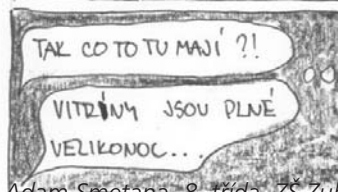 TAK CO TO TU MAJÍ ?!
VITRÍNY JSOU PLNÉ
VELIKONOC...
Adam Smetana, 8. třída, ZŠ